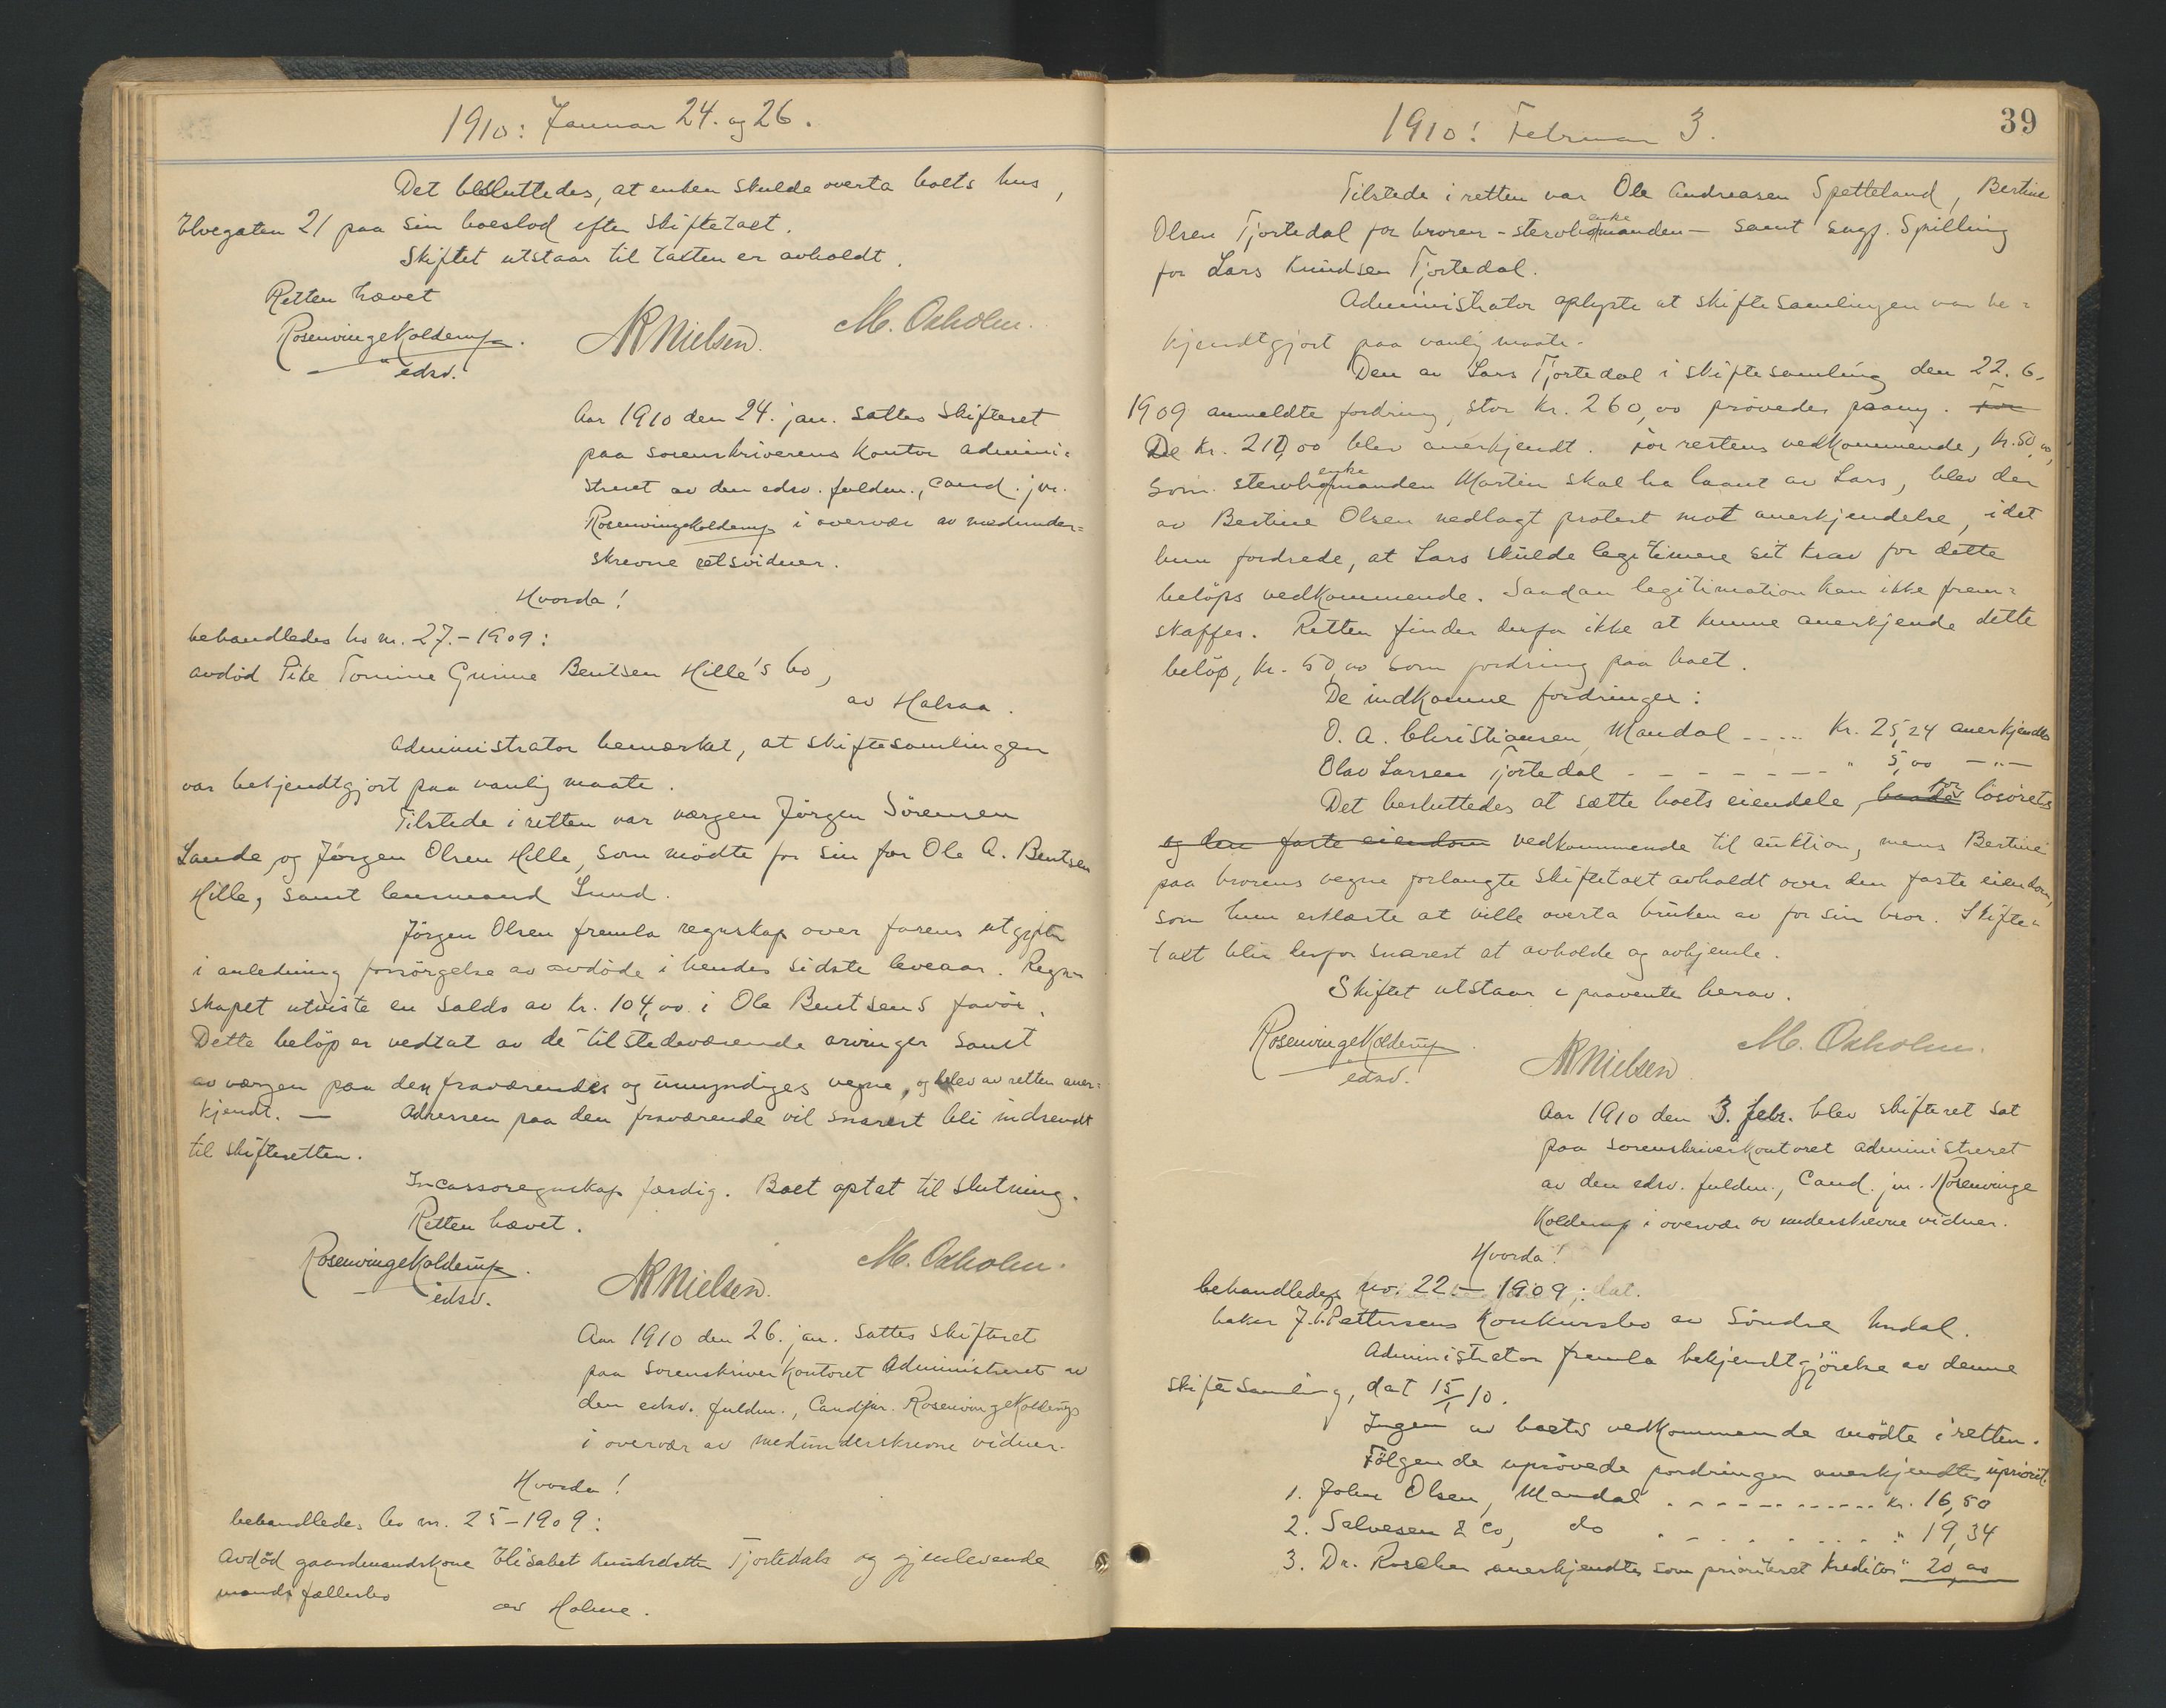 1910: Januar 24. og 26.
Det besluttedes, at enken skulde overta boets hus,
Elvegaten 21 paa sin boeslod efter skiftetaxt.
Skiftet utstaar til taxten er avholdt.
Retten hævet
RosenvingeKolderup.
edsv.
NNielsen.
M. Oxholm.
Aar 1910 den 24. jan. sattes skifteret
paa sorenskriverens kontor admini-
streret av den edsv. fuldm., cand. jur.
RosenvingeKolderup i overvær av medunder-
skrevne retsvidner.
Hvorda!
behandledes bo nr. 27.-1909:
avdød Pike Tomine Gurine Bentsen Hille's bo,
av Halsaa.
Administrator bemerket, at skiftesamlingen
var bekjendtgjort paa vanlig maate.
Tilstede i retten var værgen Jørgen Sørensen
Lande, og Jørgen Olsen Hille, som mødte for sin far Ole A. Bentsen
Hille, samt lensmand Lund.
Jørgen Olsen fremla regnskap over farens utgifter
i anledning forsørgelse av avdøde i hendes sidste leveaar. Regn-
skapet utviste en saldo av kr. 104,00 i Ole Bentsens favør.
Dette beløp er vedtat av de tilstedeværende arvinger samt
av værgen paa den fraværendes og umyndiges vegne, og blev av retten aner-
kjendt. — Adressen paa den fraværende vil snarest bli indsendt
til skifteretten.
Incassoregnskap færdig. Boet optat til slutning.
Retten hævet.
RosenvingeKolderup.
edsv.
NNielsen.
M. Oxholm.
Aar 1910 den 26. jan. sattes skifteret
paa sorenskriverkontoret administreret av
den edsv. fuldm., Cand jur. RosenvingeKolderup
i overvær av medunderskrevne vidner.
Hvorda!
behandledes bo nr. 25-1909:
Avdød gaardmandskone Elisabet Knudsdatter Tjortedals og gjenlevende
mands fællesbo
av Holme.
1910: Februar 3.
39
Tilstede i retten var Ole Andreasen Spetteland, Bertine
Olsen Tjortedal for broren - stervboenkemanden - samt sagf. Spilling
for Lars Knudsen Tjortedal.
Administrator oplyste at skiftesamlingen var be-
kjendtgjort paa vanlig maate.
Den av Lars Tjortedal i skiftesamling den 22. 6.
1909 anmeldte fordring, stor kr. 260,00 prøvedes paany. For
De kr. 210,00 blev anerkjendt. For restens vedkommende, kr. 50,00,
som stervboenkemanden Martin skal ha laant av Lars, blev der
av Bertine Olsen nedlagt protest mot anerkjendelse, idet
hun fordrede, at Lars skulde legitimere sit krav for dette
beløps vedkommende. Saadan legitimation kan ikke frem-
skaffes. Retten finder derfor ikke at kunne anerkjende dette
beløp, kr. 50,00 som fordring paa boet.
De indkomne fordringer:
O. A. Christiansen, Mandal ..... kr. 25,24 anerkjendtes
Olav Larsen Tjortedal - - - - - - - " 5,00 —"—
Det besluttedes at sætte boets eiendele, baade for løsørets
og den faste eiendom vedkommende til auktion, mens Bertine
paa brorens vegne forlangte skiftetaxt avholdt over den faste eiendom,
som hun erklærte at ville overta bruken av for sin bror. Skifte-
taxt blir derfor snarest at avholde og avhjemle.
Skiftet utstaar i paavente herav.
RosenvingeKolderup.
edsv.
NNielsen
M. Oxholm.
Aar 1910 den 3. febr. blev skifteret sat
paa sorenskriverkontoret administreret
av den edsv. fuldm., Cand. jur. Rosenvinge
Kolderup i overvær av underskrevne vidner.
Hvorda!
behandledes no: 22 - 1909:
baker J. P. Pettersens Konkursbo av Søndre Undal.
Administrator fremla bekjendtgjørelse av denne
skiftesamling, dat 15/1 10.
Ingen av boets vedkommende mødte i retten.
Følgende uprøvede fordringer anerkjendtes uprioit.
1. John Olsen, Mandal ............ kr. 16,50
2. Salvesen & Co, do ........ " 19,34
3. Dr. Roscher anerkjendtes som prioriteret kreditor " 20,00